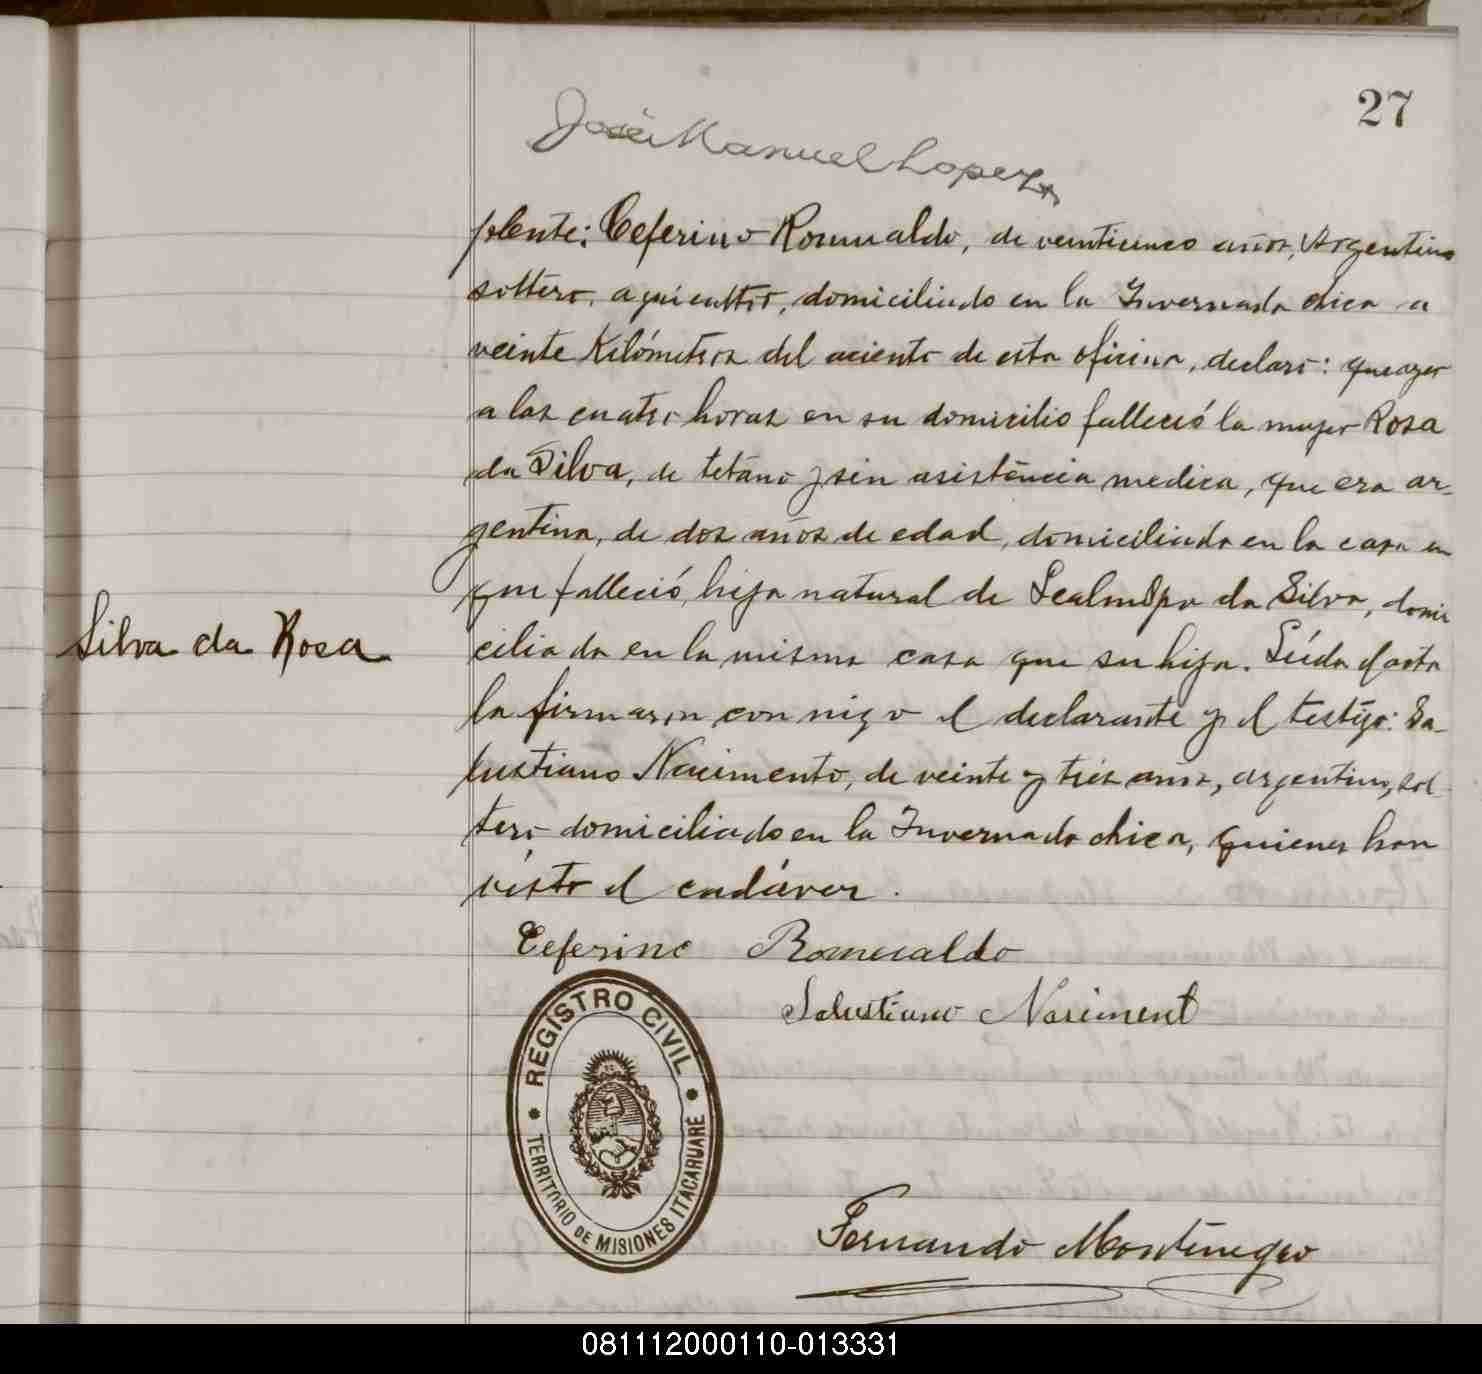 27
José Manuel Lopez
plente: Ceferino Romualdo, de veinticinco años, Argentino
soltero, agricultor, domiciliado en la Invernada chica a
veinte Kilómetros del aciento de esta oficina, declaro: que ayer
a las cuatro horas en su domicilio falleció la mujer Rosa
da Silva, de tetano y sin asistencia medica, que era ar-
gentina, de dos años de edad, domiciliada en la casa en
que falleció, hija natural de da Silva, domi
Silva da Rosa
ciliada en la misma casa que su hija. Leída el acta
la firmaron conmigo el declarante y el testigo: Sa-
lustiano Nacimento, de veinte y tres años, argentino, sol
tero domiciliado en la Invernada chica, quienes han
visto el cadáver.
Ceferino Romualdo
Salustiano Nasiment
REGISTRO CIVIL
TERRITORIO DE MISIONES ITACARUARE
Fernando Montenegro
081112000110-013331